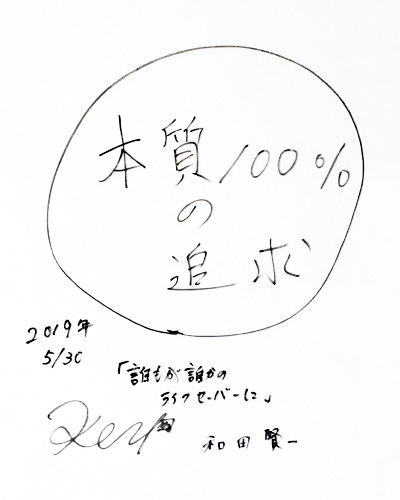 本質100%
の
追求
2019年
5/30
「誰もが誰かの
ライフセーバーに」
Ken
和田賢一